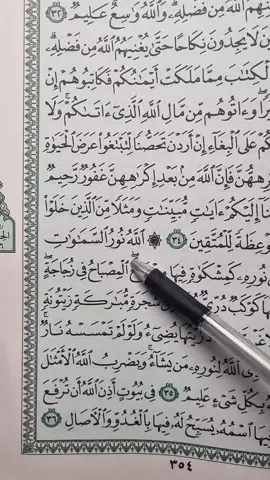 هِمُ ٱللَّهُ مِن فَضْلِهِۦ وَٱللَّهُ وَٰسِعٌ عَلِيمٌ ٣٢
ينَ لَا يَجِدُونَ نِكَاحًا حَتَّىٰ يُغْنِيَهُمُ ٱللَّهُ مِن فَضْلِهِۦ
ٱلْكِتَٰبَ مِمَّا مَلَكَتْ أَيْمَٰنُكُمْ فَكَاتِبُوهُمْ إِنْ
وَءَاتُوهُم مِّن مَّالِ ٱللَّهِ ٱلَّذِىٓ ءَاتَىٰكُمْ وَلَا
كُمْ عَلَى ٱلْبِغَآءِ إِنْ أَرَدْنَ تَحَصُّنًا لِّتَبْتَغُوا۟ عَرَضَ ٱلْحَيَوٰةِ
هُّنَّ فَإِنَّ ٱللَّهَ مِنۢ بَعْدِ إِكْرَٰهِهِنَّ غَفُورٌ رَّحِيمٌ
إِلَيْكُمْ ءَايَٰتٍ مُّبَيِّنَٰتٍ وَمَثَلًا مِّنَ ٱلَّذِينَ خَلَوْا۟
عِظَةً لِّلْمُتَّقِينَ ٣٤ ٱللَّهُ نُورُ ٱلسَّمَٰوَٰتِ
نُورِهِۦ كَمِشْكَوٰةٍ فِيهَا ٱلْمِصْبَاحُ فِى زُجَاجَةٍ
كَوْكَبٌ شَجَرَةٍ مُّبَٰرَكَةٍ زَيْتُونَةٍ
يُضِىٓءُ وَلَوْ لَمْ تَمْسَسْهُ نَارٌ
ٱللَّهُ لِنُورِهِۦ مَن يَشَآءُ وَيَضْرِبُ ٱللَّهُ ٱلْأَمْثَٰلَ
بِكُلِّ شَىْءٍ عَلِيمٌ ٣٥ فِى بُيُوتٍ أَذِنَ ٱللَّهُ أَن تُرْفَعَ
ٱسْمُهُۥ يُسَبِّحُ لَهُۥ فِيهَا بِٱلْغُدُوِّ وَٱلْءَاصَالِ ٣٦
٣٥٤